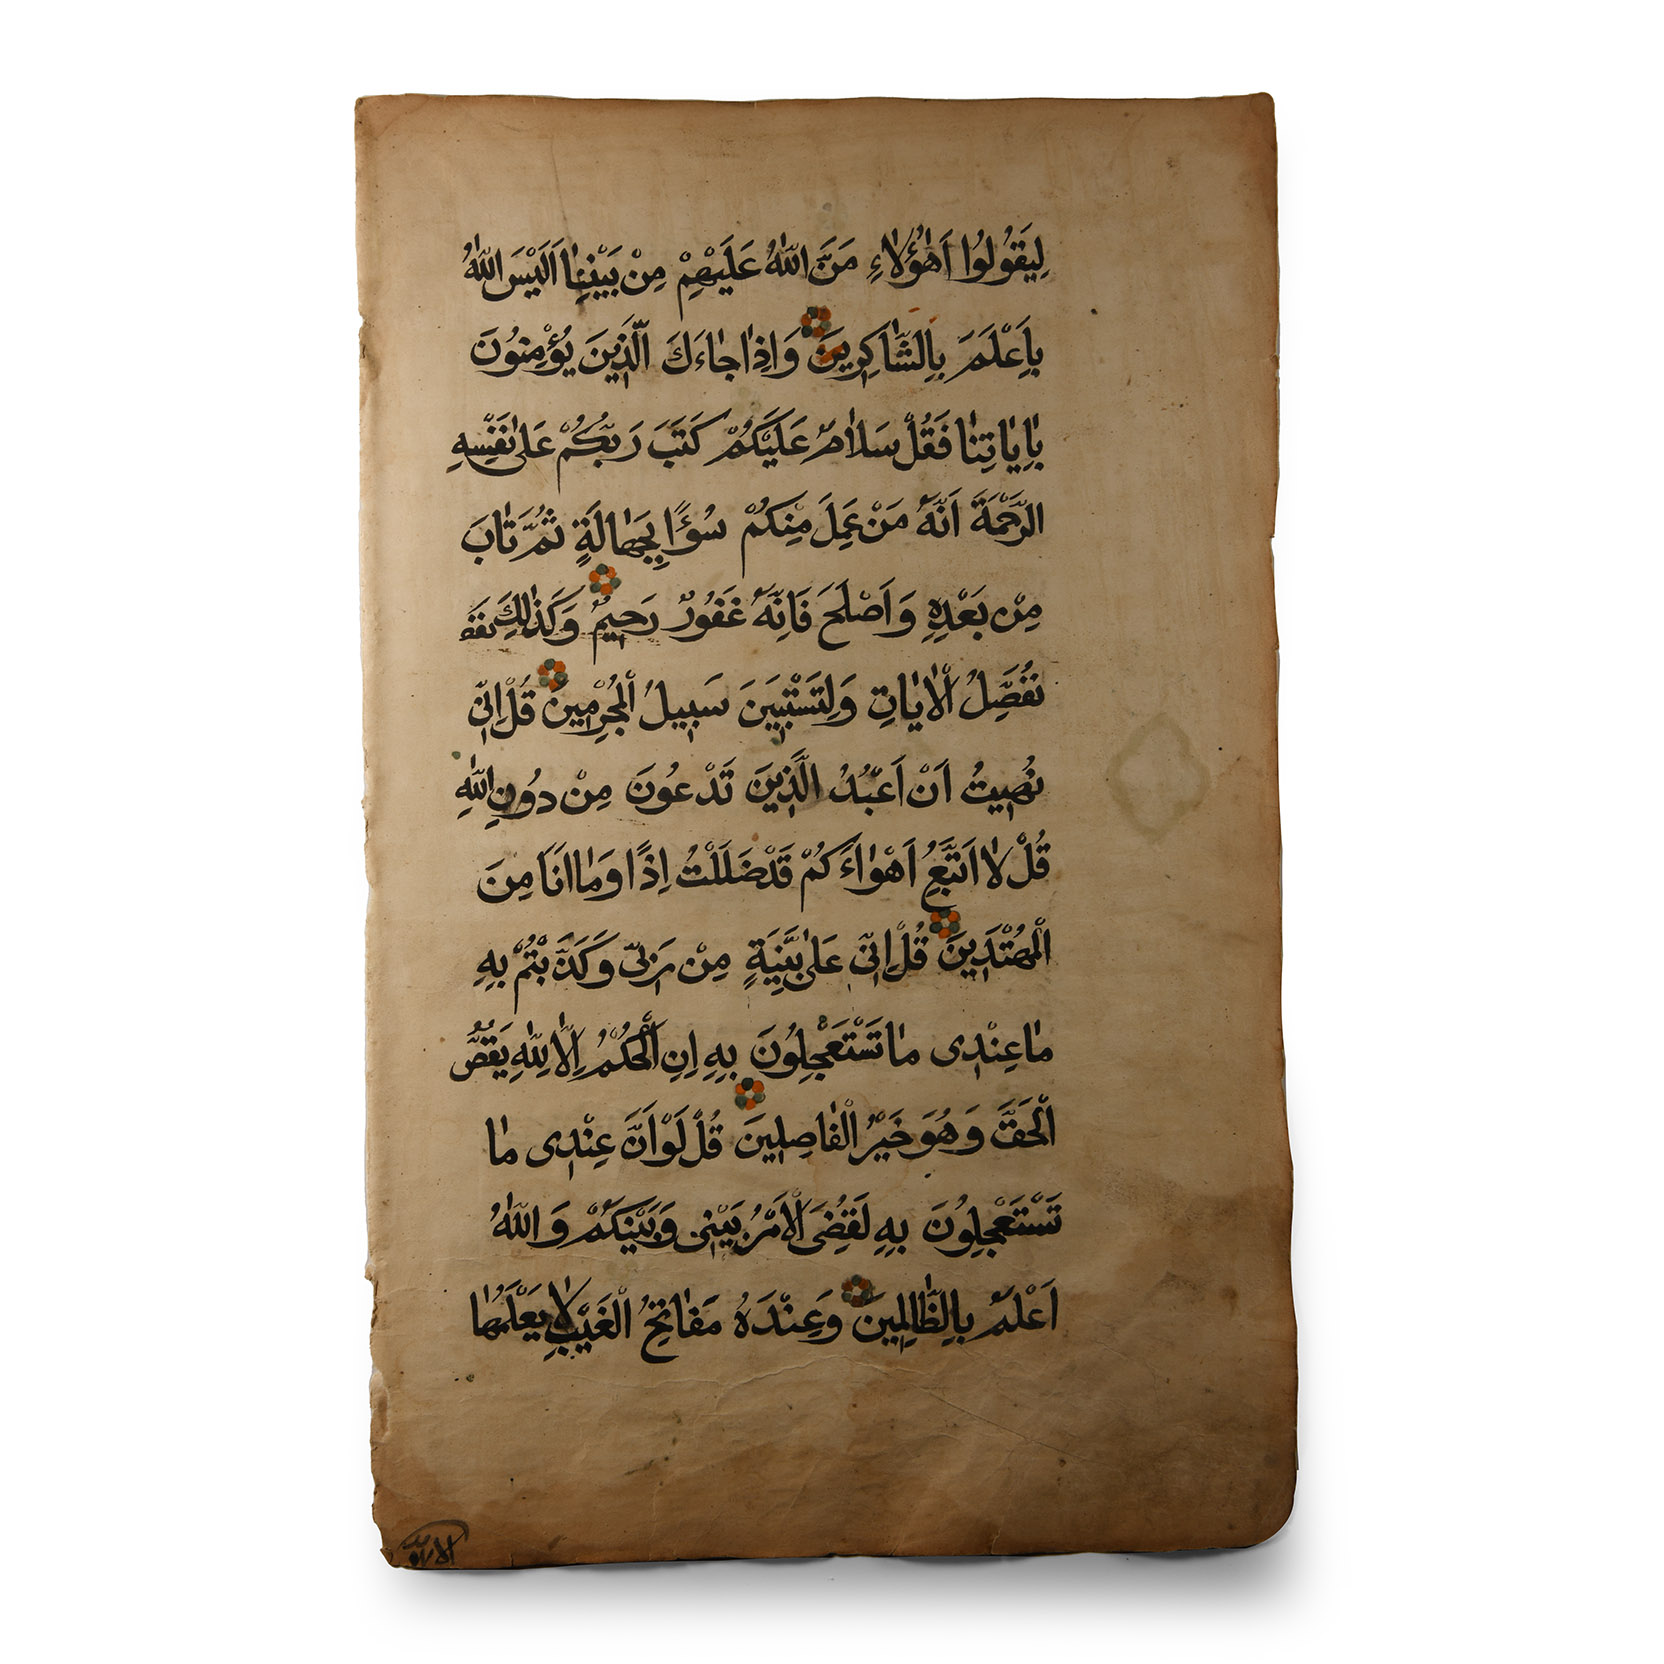 لِيَقُولُوا اَهٰؤُلٰاءِ مَنَّ اللّٰهُ عَلَيْهِمْ مِنْ بَيْنِنٰا اَلَيْسَ اللّٰهُ
بِاَعْلَمَ بِالشّٰاكِرِينَ وَاِذٰا جٰاءَكَ الَّذِينَ يُؤْمِنُونَ
بِاٰيٰاتِنٰا فَقُلْ سَلٰامٌ عَلَيْكُمْ كَتَبَ رَبُّكُمْ عَلىٰ نَفْسِهِ
الرَّحْمَةَ اَنَّهُ مَنْ عَمِلَ مِنْكُمْ سُوءًا بِجَهٰالَةٍ ثُمَّ تٰابَ
مِنْ بَعْدِهِ وَاَصْلَحَ فَاِنَّهُ غَفُورٌ رَحِيمٌ وَكَذٰلِكَ نفص
نُفَصِّلُ الْاٰيٰاتِ وَلِتَسْتَبِينَ سَبِيلُ الْمُجْرِمِينَ قُلْ اِنِّى
نُهِيتُ اَنْ اَعْبُدَ الَّذِينَ تَدْعُونَ مِنْ دُونِ اللّٰهِ
قُلْ لٰا اَتَّبِعُ اَهْوٰاءَكُمْ قَدْ ضَلَلْتُ اِذًا وَمٰا اَنَا مِنَ
الْمُهْتَدِينَ قُلْ اِنِّى عَلىٰ بَيِّنَةٍ مِنْ رَبِّى وَكَذَّبْتُمْ بِهِ
مٰا عِنْدِى مٰا تَسْتَعْجِلُونَ بِهِ اِنِ الْحُكْمُ اِلّٰا لِلّٰهِ يَقُصُّ
الْحَقَّ وَهُوَ خَيْرُ الْفٰاصِلِينَ قُلْ لَوْ اَنَّ عِنْدِى مٰا
تَسْتَعْجِلُونَ بِهِ لَقُضِىَ الْاَمْرُ بَيْنِى وَبَيْنَكُمْ وَاللّٰهُ
اَعْلَمُ بِالظّٰالِمِينَ وَعِنْدَهُ مَفٰاتِحُ الْغَيْبِ لٰا يَعْلَمُهٰا